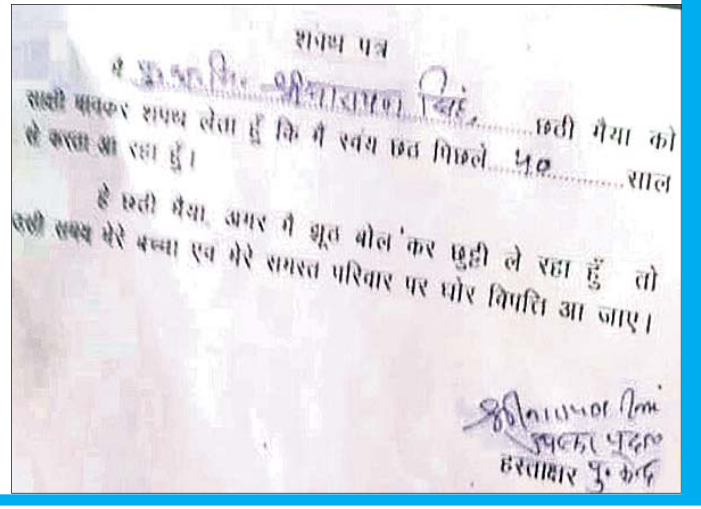 शपथ पत्र
मै पु० अ० नि० श्रीनारायण सिंह, छठी मैया को
साक्षी मानकर शपथ लेता हूँ कि मै स्वंय छठ पिछले 50 साल
से करता आ रहा हूँ।
हे छठी मैया, अगर मै झूठ बोल कर छुट्टी ले रहा हूँ तो
उसी समय मेरे बच्चा एव मेरे समस्त परिवार पर घोर विपत्ति आ जाए।
श्रीनारायण सिंह
हस्ताक्षर पु० केन्द्र